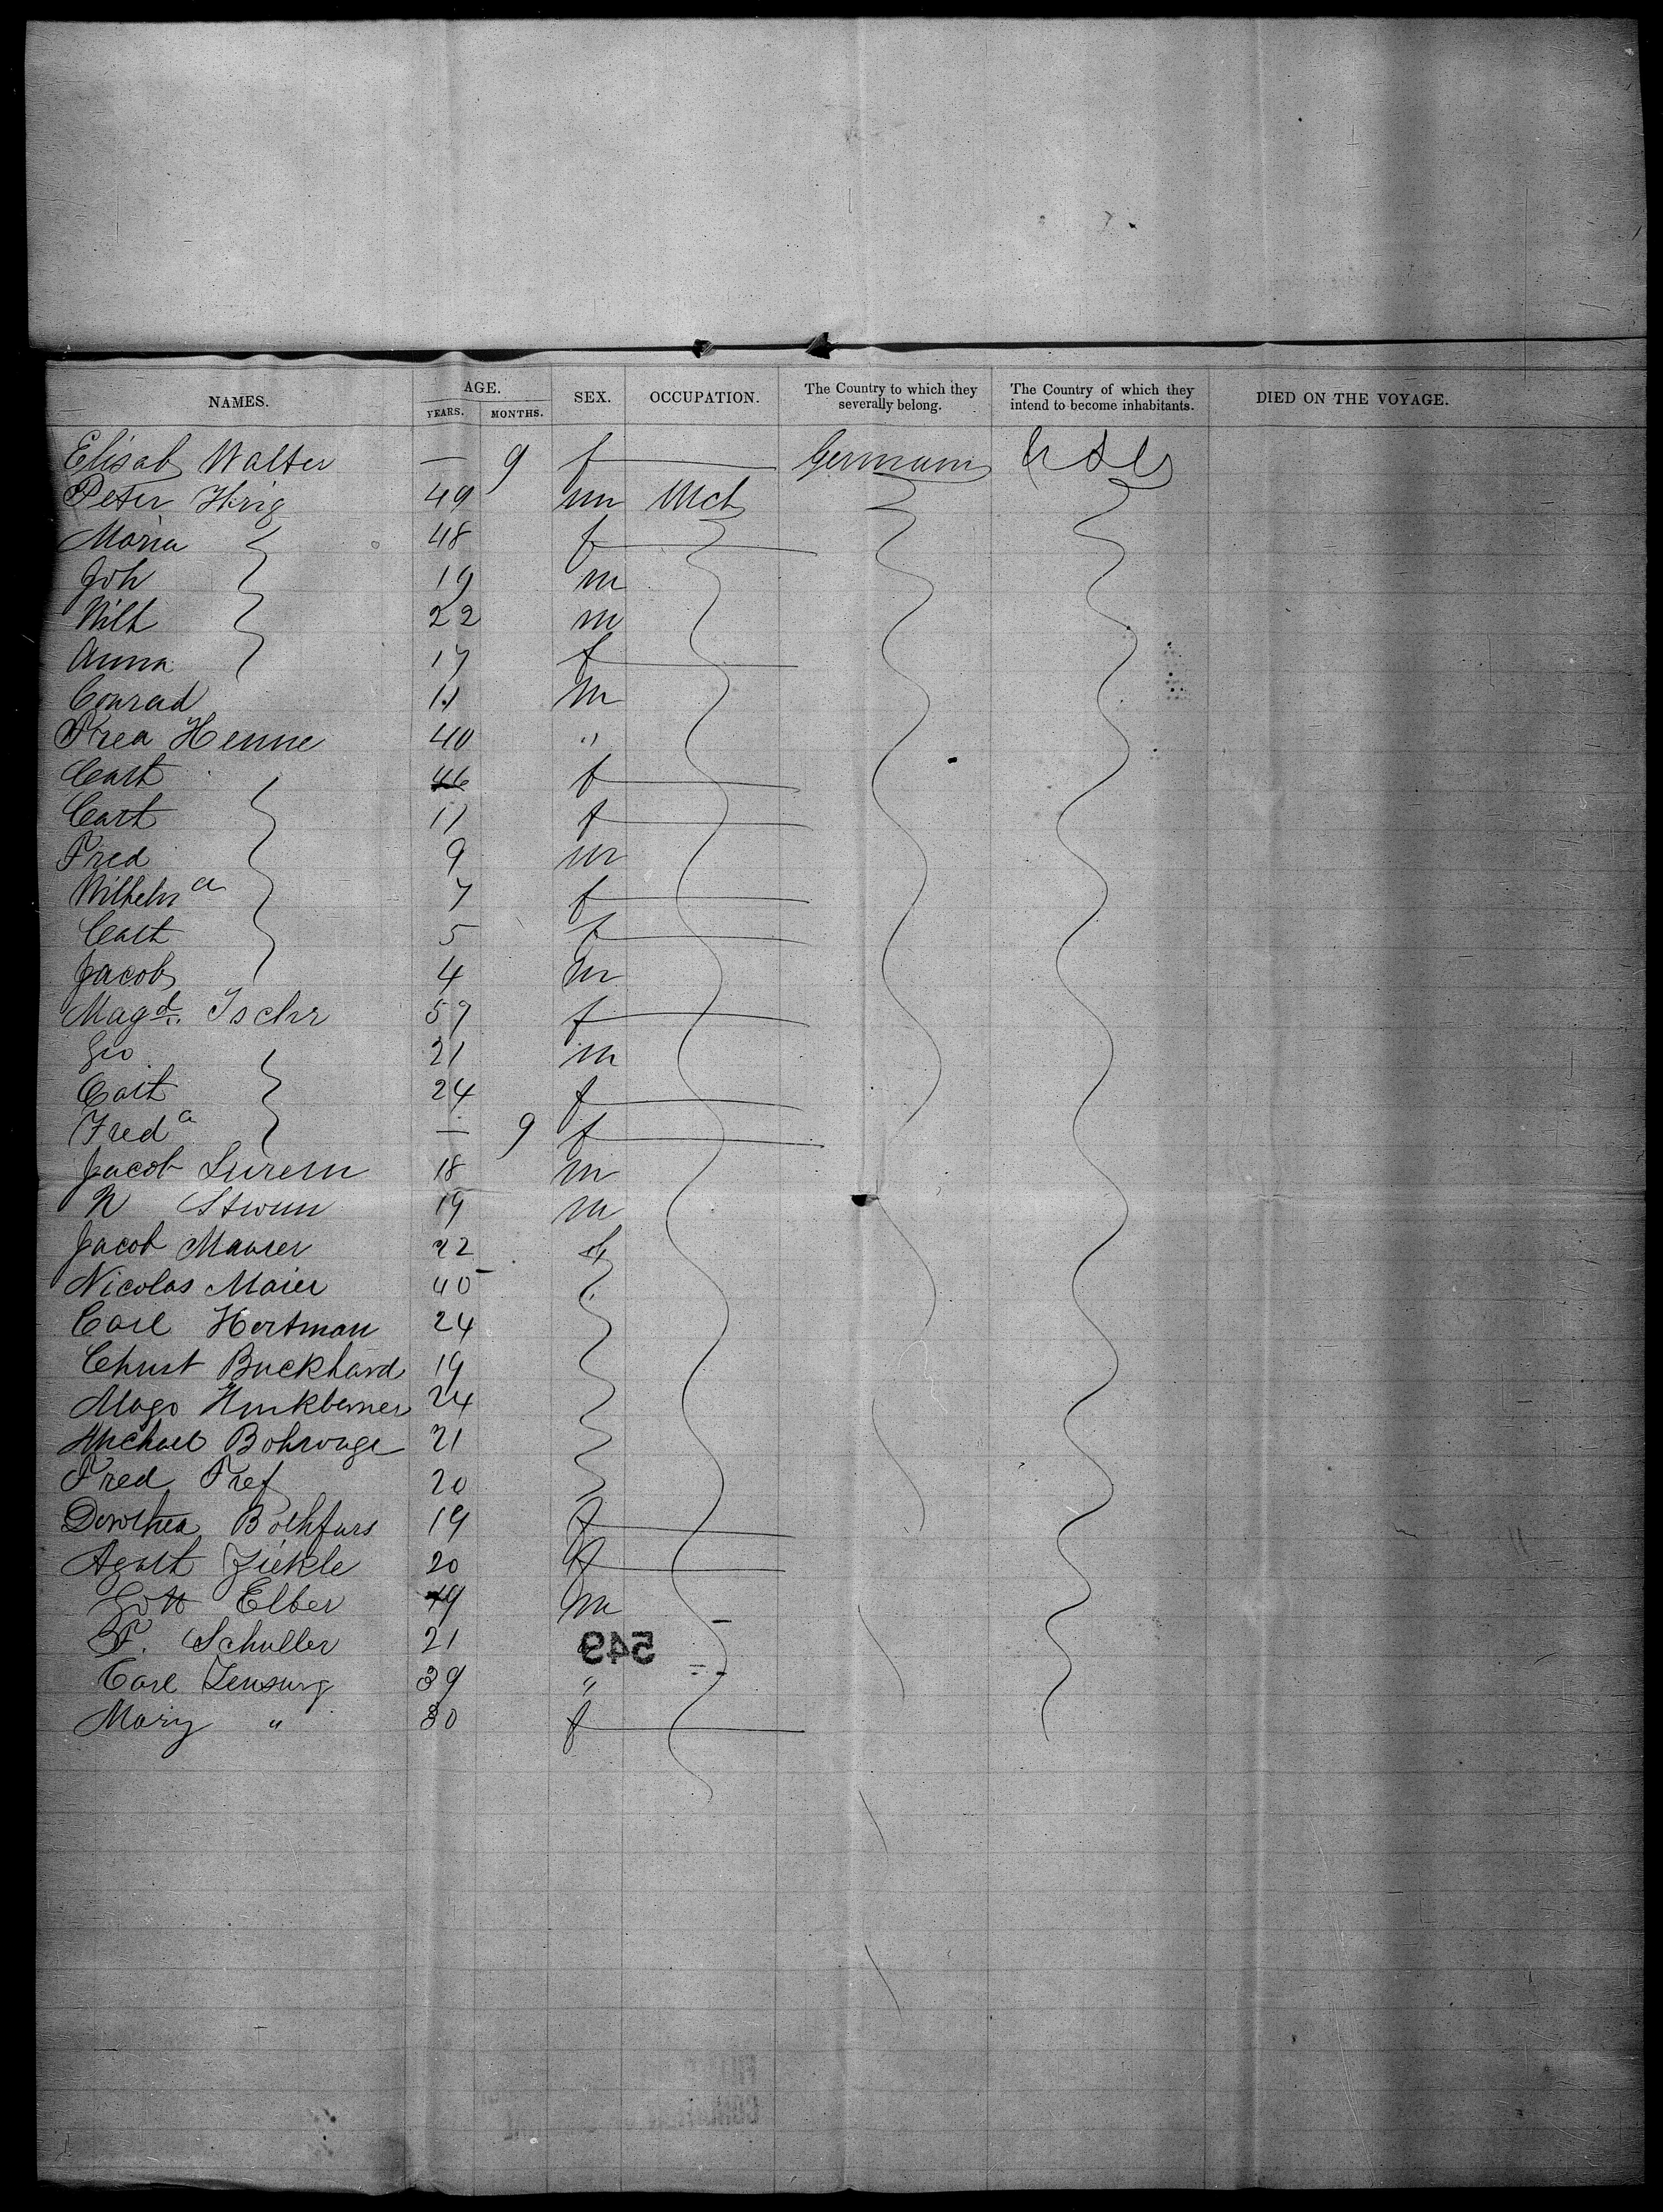 NAMES. AGE. YEARS. MONTHS. SEX. OCCUPATION. The Country to which they severally belong. The Country of which they intend to become inhabitants. DIED ON THE VOYAGE.
Elisab Walter — 9 f Germany U S
Peter 49 m Mch
Maria 48 f
Joh 19 m
Wilh 22 m
Anna 17 f
Conrad 11 m
Fred Henne 40 "
Cath 46 f
Cath 11 f
Fred 9 m
Wilhelm a 7 f
Cath 5 f
Jacob 4 m
Magd. Ischr 57 f
Geo 21 m
Cath 24 f
Fred a — 9 f
Jacob 18 m
N 19 m
Jacob Maurer 22
Nicolas Maier 40
Carl Hartman 24
Christ Buckhard 19
24
Michael 21
Fred Fref 20
Dorothea Bothfurs 19 f
Agath Zickle 20 f
Gott Elber 19 m
F. Schuller 21
549
Carl 39 "
Mary " 30 f